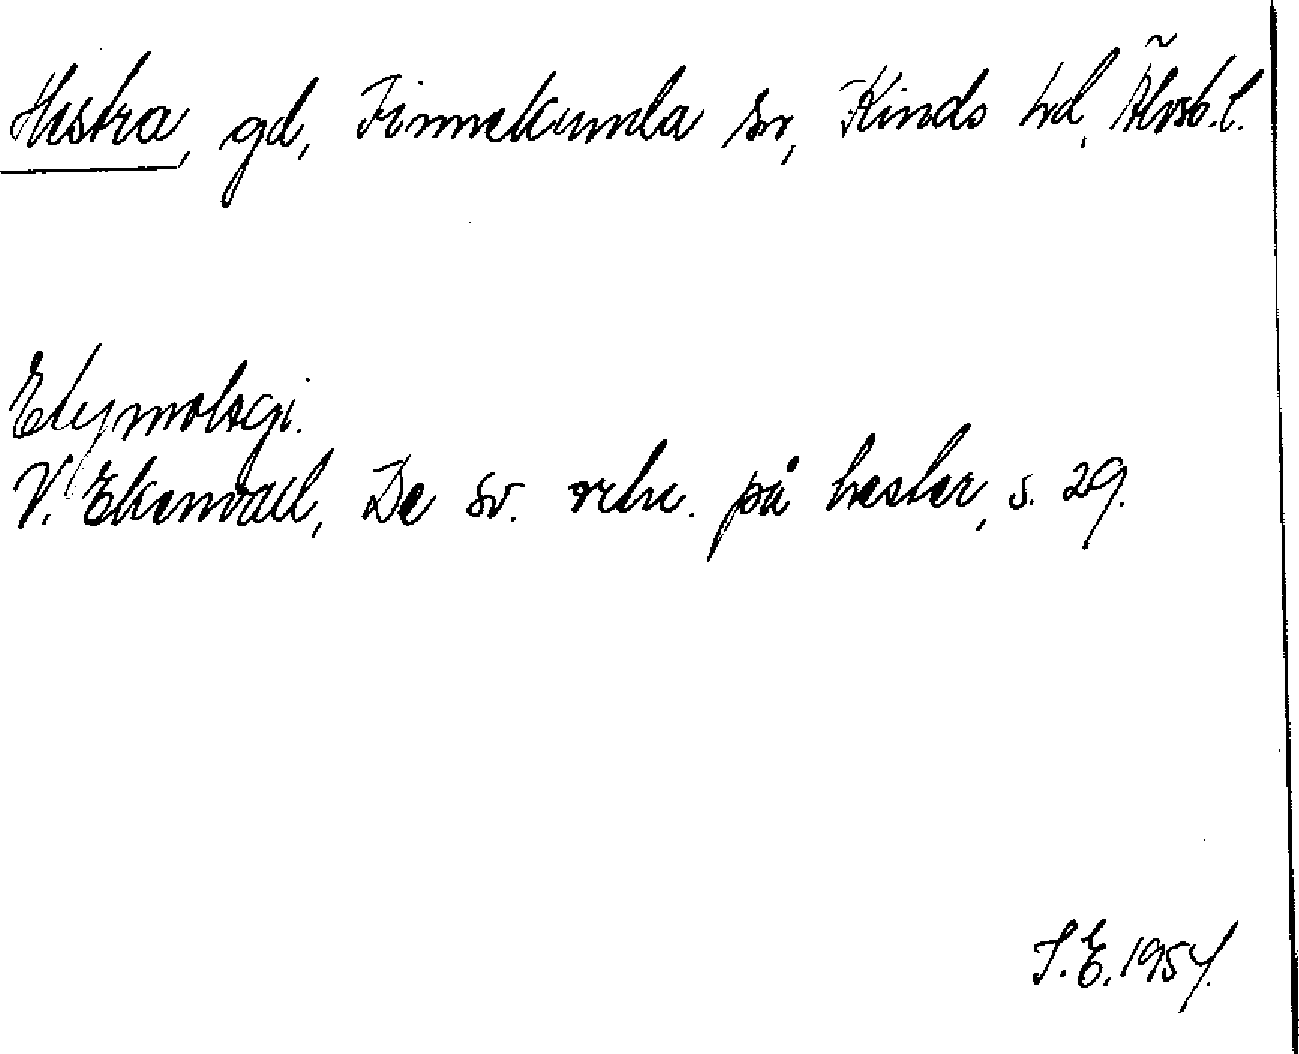 Hestra, gd, Finnekumla sn, Kinds hd, Älvsb. l.
Etymologi.
V. Ekenvall, De sv. rehe. på hester, s. 29.
S. E. 1954.